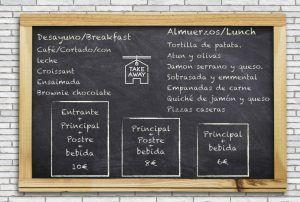 Desayuno/Breakfast
Café/Cortado/con
leche
Croissant
Ensaimada
Brownie chocolate
TAKE
AWAY
Almuerzos/Lunch
Tortilla de patata.
Atun y olivas
Jamon serrano y queso.
Sobrasada y emmental
Empanadas de carne
Quiché de jamón y queso
Pizzas caseras
Entrante
+
Principal
+
Postre
+
bebida
10€
Principal
+
Postre
+
bebida
8€
Principal
+
bebida
6€